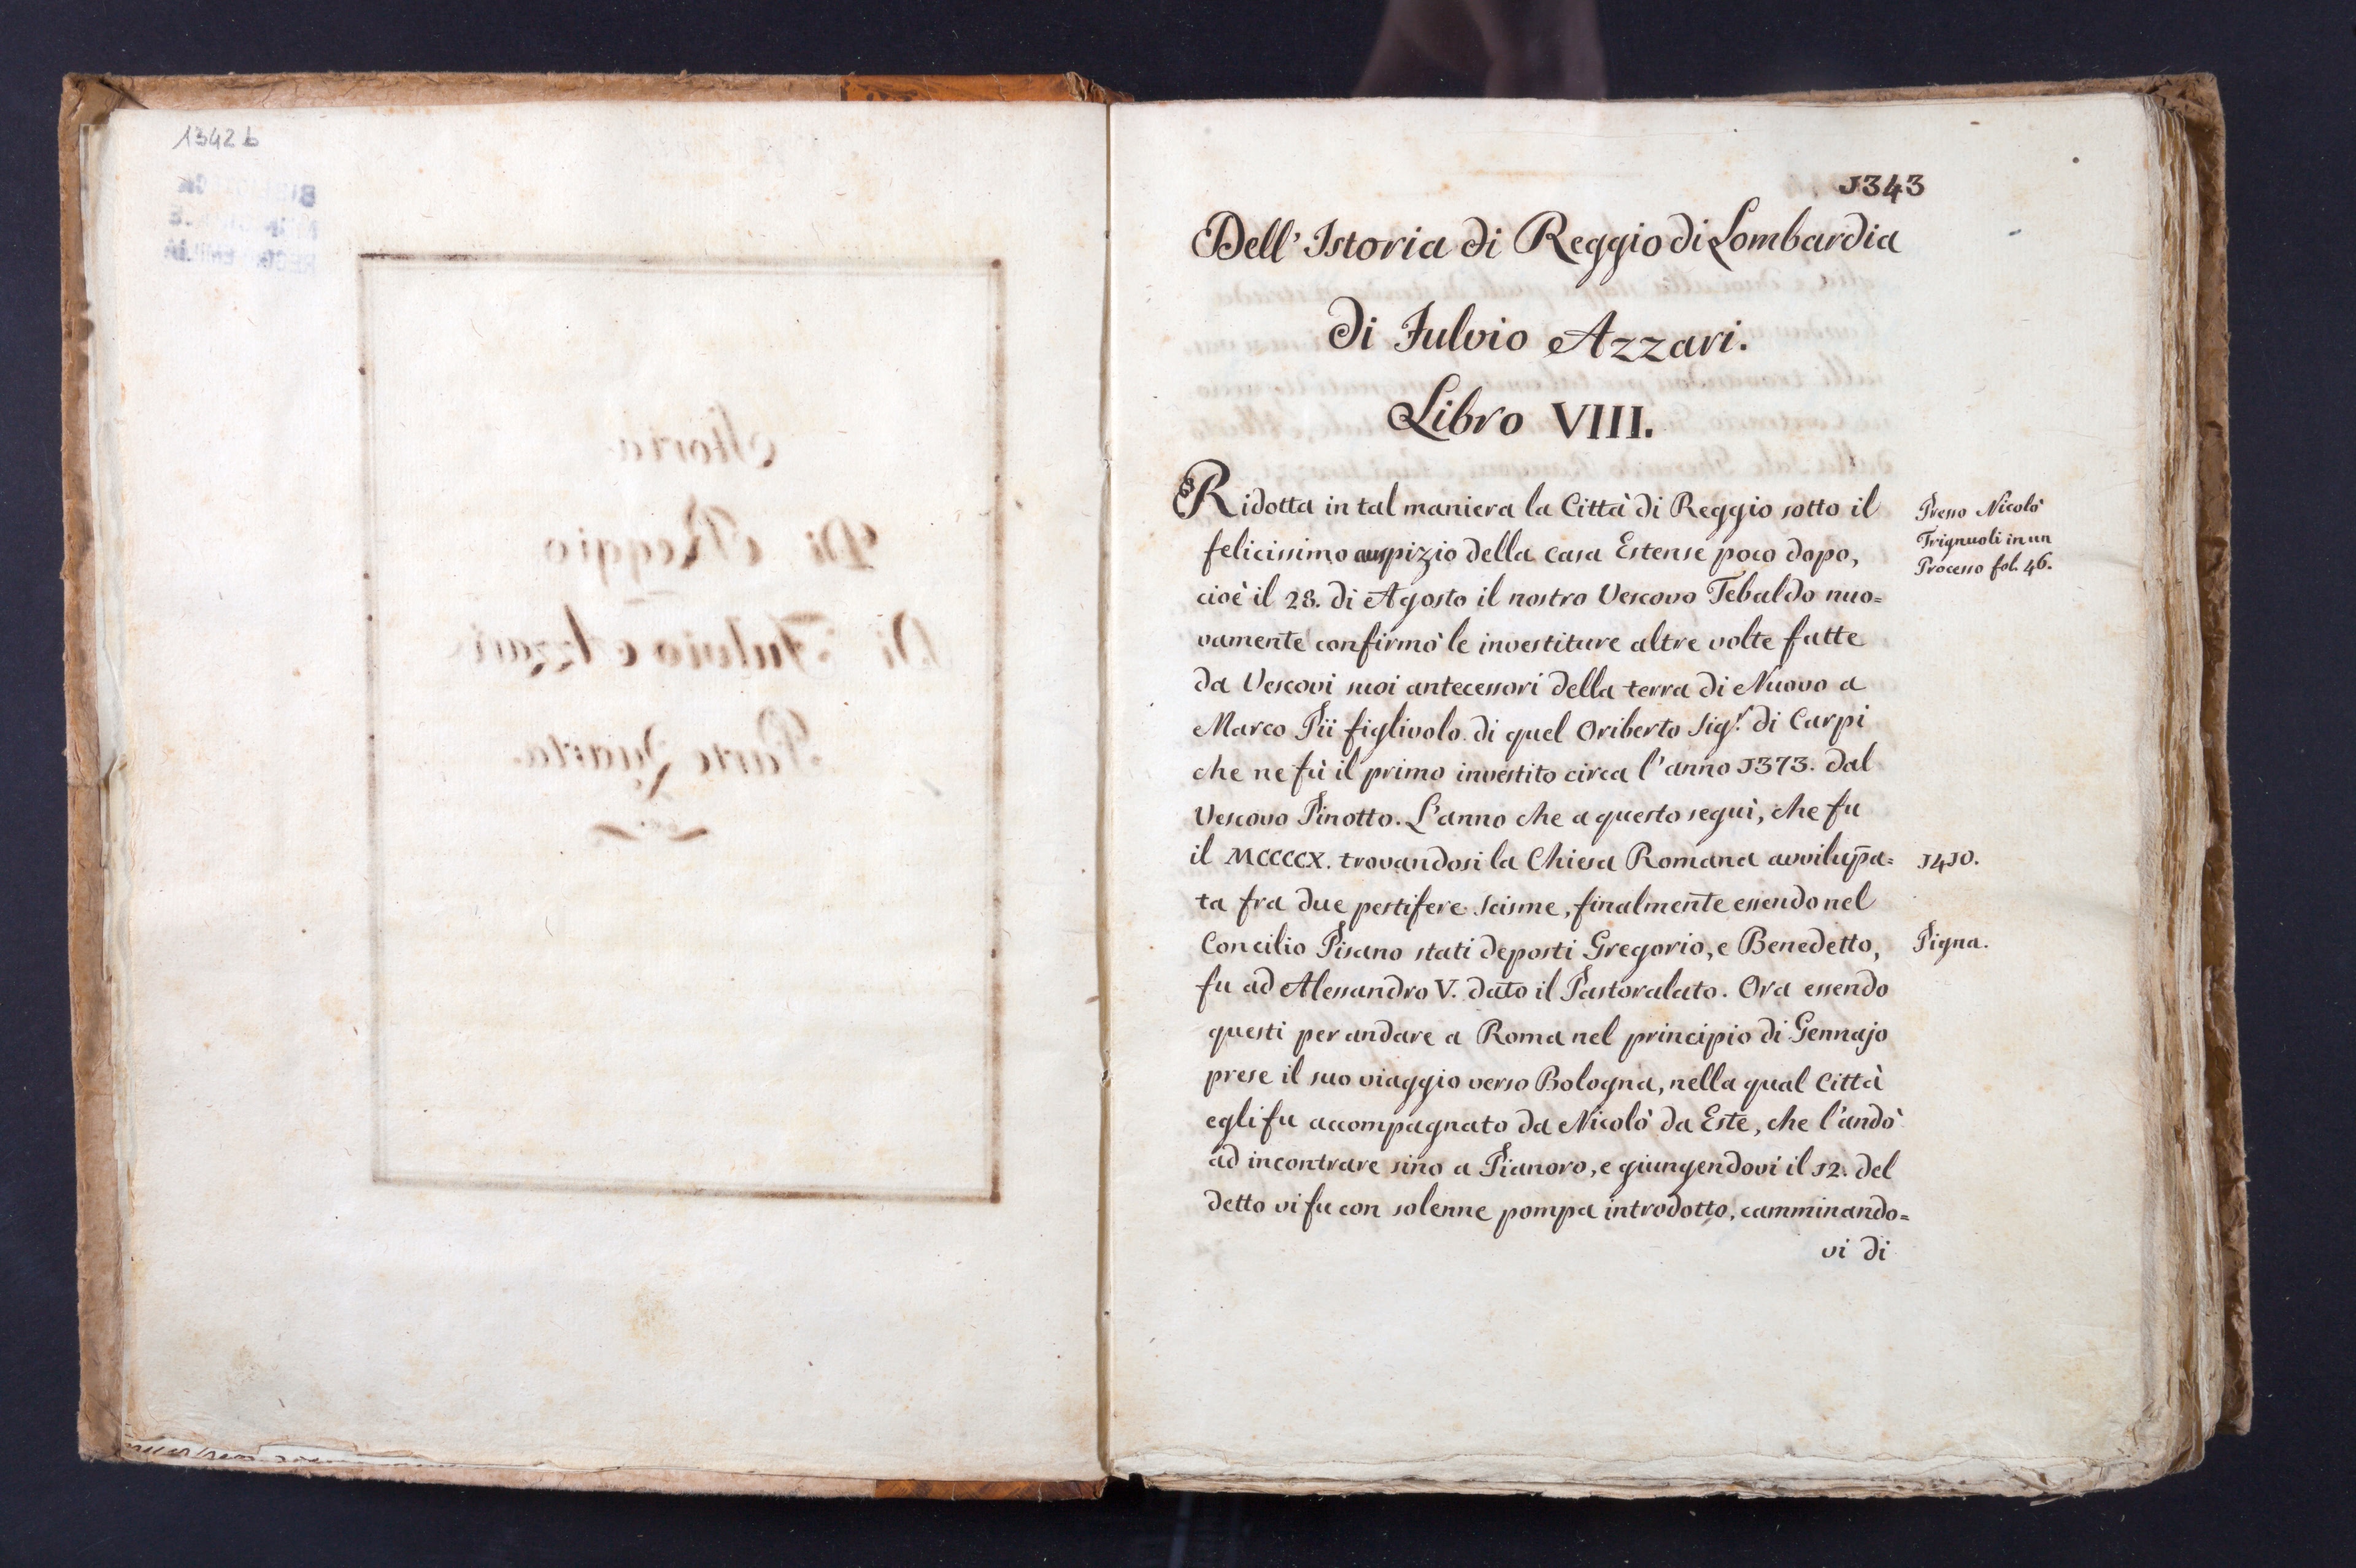 1342 b
Storia
Di Reggio
Di Fulvio Azzari
Parte Quarta
1343
Dell' Istoria di Reggio di Lombardia
di Fulvio Azzari.
Libro VIII.
Ridotta in tal maniera la Città di Reggio sotto il
felicissimo auspizio della casa Estense poco dopo,
cioè il 28. di Agosto il nostro Vescovo Tebaldo nuo=
vamente confirmò le investiture altre volte fatte
da Vescovi suoi antecessori della terra di Nuovo a
Marco Pii figlivolo di quel Oriberto Sig.r di Carpi
che ne fù il primo investito circa l'anno 1373. dal
Vescovo Pinotto. L'anno che a questo seguì, che fu
il MCCCCX. trovandosi la Chiesa Romana avvilupa=
ta fra due pestifere scisme, finalmente essendo nel
Concilio Pisano stati deposti Gregorio, e Benedetto,
fu ad Alessandro V. dato il Pastoralato. Ora essendo
questi per andare a Roma nel principio di Gennajo
prese il suo viaggio verso Bologna, nella qual Città
egli fu accompagnato da Nicolò da Este, che l'andò
ad incontrare sino a Pianoro, e giungendovi il 12. del
detto vi fu con solenne pompa introdotto, camminando=
vi di
Presso Nicolò
Trignuoli in un
Processo fol. 46.
1410.
Pigna.